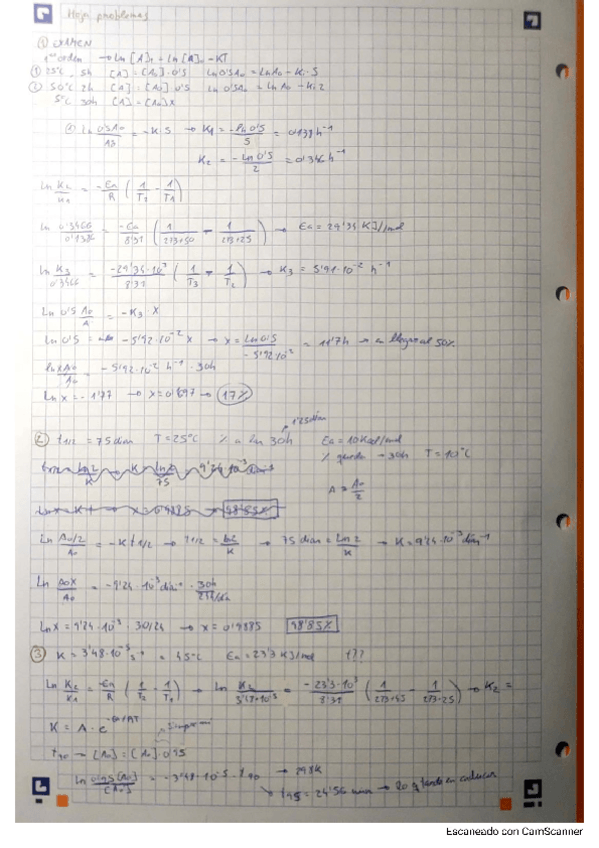 Hoja problemas
① EXAMEN
1er orden → Ln [A]t = Ln [A]o - KT
① 25ºC 5h [A] = [Ao] 0'5 Ln 0'5Ao = Ln Ao - K1·5
② 50ºC 2h [A] = [Ao] 0'5 Ln 0'5Ao = Ln Ao - K2·2
5ºC 30h [A] = [Ao] x
Ln 0'5Ao/Ao = -K·5 → K1 = -Ln 0'5/5 = 0'138 h⁻¹
K2 = -Ln 0'5/2 = 0'346 h⁻¹
Ln K2/K1 = -Ea/R (1/T2 - 1/T1)
Ln 0'3466/0'1386 = -Ea/8'31 (1/273+50 - 1/273+25) → Ea = 29'34 KJ/mol
Ln K3/0'3466 = -29'34·10³/8'31 (1/T3 - 1/T2) → K3 = 5'91·10⁻² h⁻¹
Ln 0'5 Ao/A = -K3·X
Ln 0'5 = -5'92·10⁻² x → x = Ln 0'5/-5'92·10² = 11'7h → en llegar al 50%
Ln xAo/Ao = -5'92·10⁻² h⁻¹·30h
Ln x = -1'77 → x = 0'697 → 17%
② t1/2 = 75 dian T = 25ºC % a las 30h Ea = 10 Kcal/mol
1'25 dian
% queda → 30h T = 10ºC
A = Ao/2
Ln Ao/2/Ao = -K t1/2 → t1/2 = Ln2/K → 75 dian = Ln2/K → K = 9'24·10⁻³ dian⁻¹
Ln Aox/Ao = -9'24·10⁻³ dian⁻¹·30h/24h/dia
Ln x = 9'24·10⁻³·30/24 → x = 0'9885 98'85%
③ K = 3'48·10⁻⁵ s⁻¹ = 45ºC Ea = 23'3 KJ/mol t??
Ln K2/K1 = -Ea/R (1/T2 - 1/T1) → Ln K2/3'48·10⁻⁵ = -23'3·10³/8'31 (1/273+45 - 1/273-25) → K2 =
K = A·e^-Ea/RT
t90 → [Ao] = [Ao]·0'95
Ln 0'95[Ao]/[Ao] = -3'48·10⁻⁵·t90 → 298K
t95 = 24'56 → lo q tarda en caducar
Escaneado con CamScanner